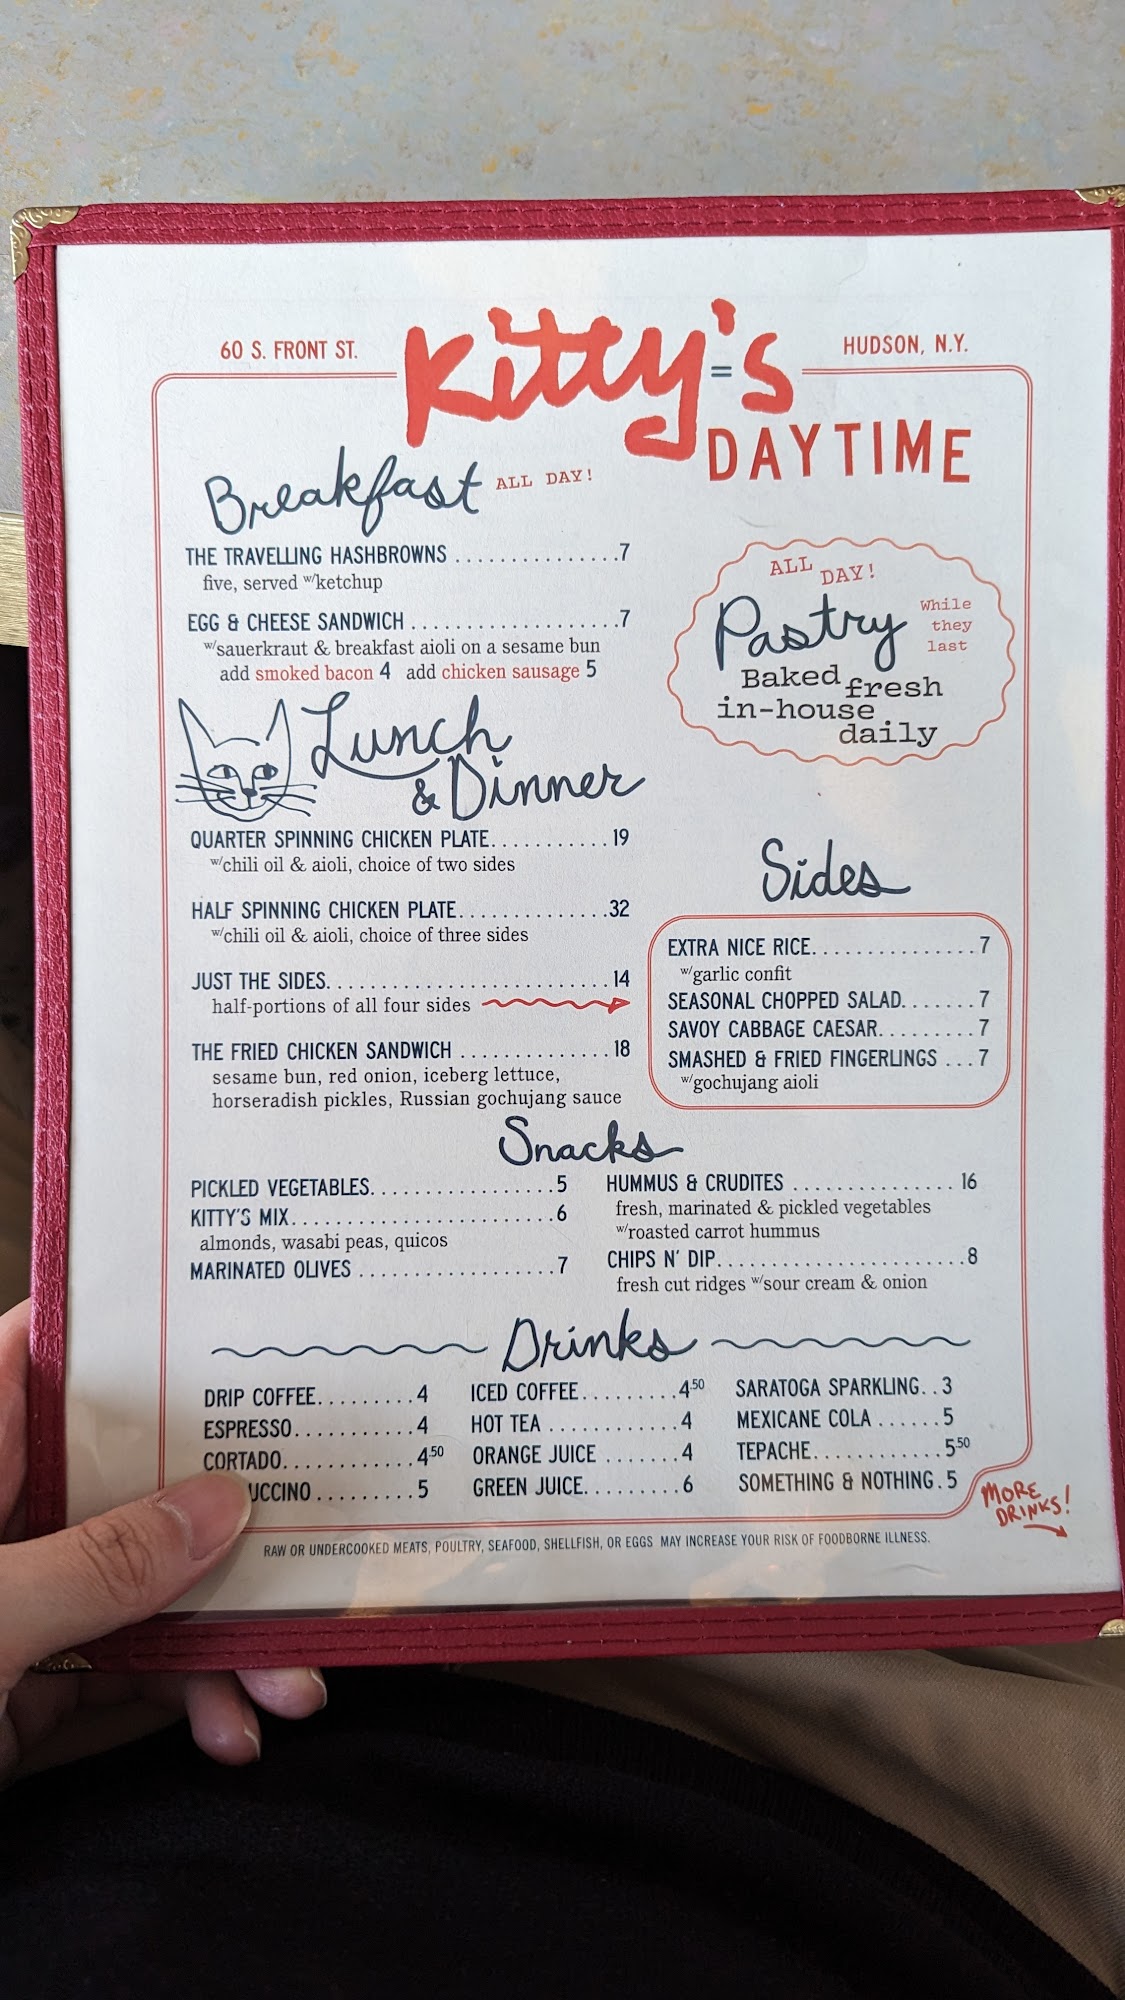 60 S. FRONT ST.
Kitty's
HUDSON, N.Y.
DAYTIME
Breakfast ALL DAY!
THE TRAVELLING HASHBROWNS ...............7
five, served w/ketchup
EGG & CHEESE SANDWICH ...................7
w/sauerkraut & breakfast aioli on a sesame bun
add smoked bacon 4 add chicken sausage 5
ALL DAY!
Pastry
While
they
last
Baked fresh
in-house
daily
Lunch
& Dinner
QUARTER SPINNING CHICKEN PLATE...........19
w/chili oil & aioli, choice of two sides
HALF SPINNING CHICKEN PLATE..............32
w/chili oil & aioli, choice of three sides
JUST THE SIDES...........................14
half-portions of all four sides
THE FRIED CHICKEN SANDWICH ..............18
sesame bun, red onion, iceberg lettuce,
horseradish pickles, Russian gochujang sauce
Sides
EXTRA NICE RICE...............7
w/garlic confit
SEASONAL CHOPPED SALAD.......7
SAVOY CABBAGE CAESAR.........7
SMASHED & FRIED FINGERLINGS ...7
w/gochujang aioli
Snacks
PICKLED VEGETABLES.................5
KITTY'S MIX........................6
almonds, wasabi peas, quicos
MARINATED OLIVES ..................7
HUMMUS & CRUDITES ............... 16
fresh, marinated & pickled vegetables
w/roasted carrot hummus
CHIPS N' DIP.......................8
fresh cut ridges w/sour cream & onion
Drinks
DRIP COFFEE.........4
ESPRESSO...........4
CORTADO............4.50
UCCINO.........5
ICED COFFEE.........4.50
HOT TEA ............4
ORANGE JUICE .......4
GREEN JUICE.........6
SARATOGA SPARKLING..3
MEXICANE COLA ......5
TEPACHE............5.50
SOMETHING & NOTHING.5
MORE
DRINKS!
RAW OR UNDERCOOKED MEATS, POULTRY, SEAFOOD, SHELLFISH, OR EGGS MAY INCREASE YOUR RISK OF FOODBORNE ILLNESS.